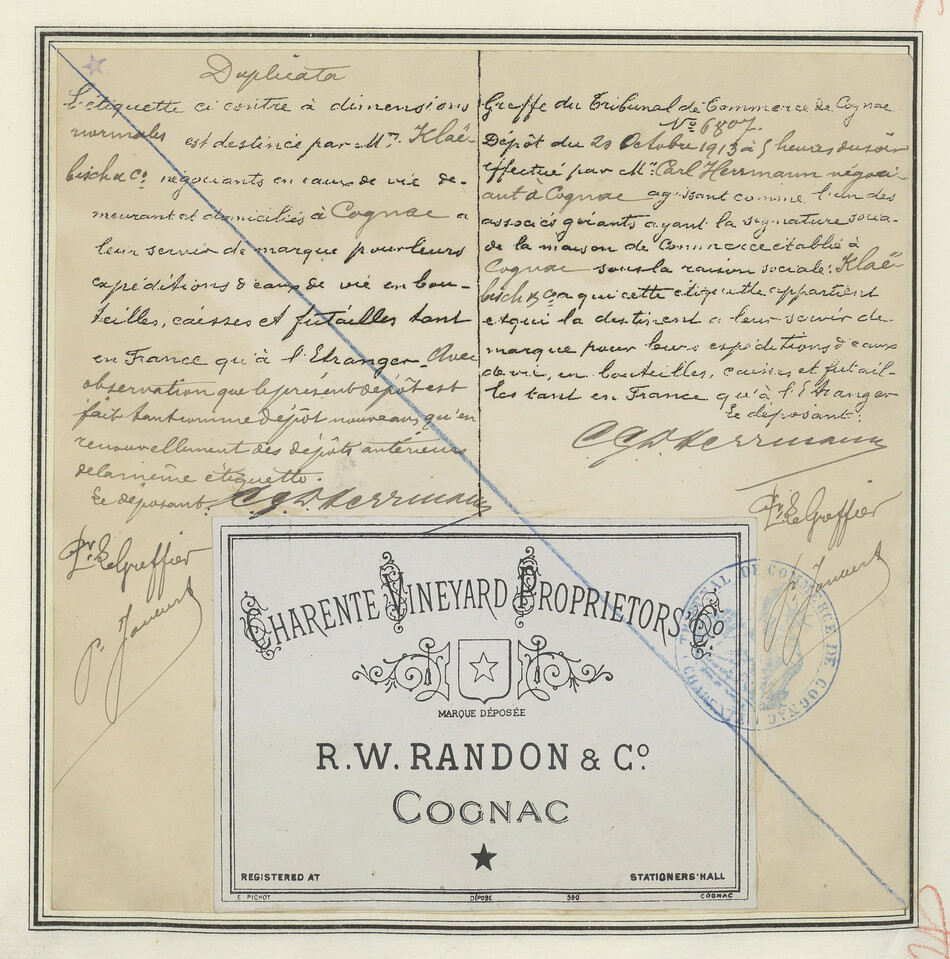 Duplicata
L'étiquette ci contre à dimensions
normales est destinée par Mrs. Klaë-
bisch & Co négociants en eaux de vie de-
meurant et domiciliés à Cognac a
leur servir de marque pour leurs
expéditions d'eaux de vie en bou-
teilles, caisses et futailles tant
en France qu'à l'Etranger. Avec
observation que le présent dépôt est
fait tant comme dépôt nouveau qu'en
renouvellement des dépôts antérieurs
de la même étiquette.
Le déposant. C G D Herrmann
Pr. Le Greffier
P. Jouvert
Greffe du Tribunal de Commerce de Cognac
No 6807.
Dépôt du 20 Octobre 1913 à 5 heures du soir
effectué par Mr. Carl Herrmann négoci-
ant à Cognac agissant comme l'un des
associés gérants ayant la signature socia-
le de la maison de Commerce établie à
Cognac sous la raison sociale: Klaë-
bisch & Co a qui cette etiquette appartient
et qui la destinent a leur servir de
marque pour leurs expéditions d'eaux
de vie, en bouteilles, caisses et futail-
les tant en France qu'à l'Etranger
Le déposant:
C G D Herrmann
Pr. Le Greffier
P. Jouvert
TRIBUNAL DE COMMERCE DE COGNAC
CHARENTE
CHARENTE VINEYARD PROPRIETORS' Co
MARQUE DÉPOSÉE
R.W. RANDON & Co.
COGNAC
REGISTERED AT STATIONERS' HALL
E. PICHOT DÉPOSÉ 590 COGNAC